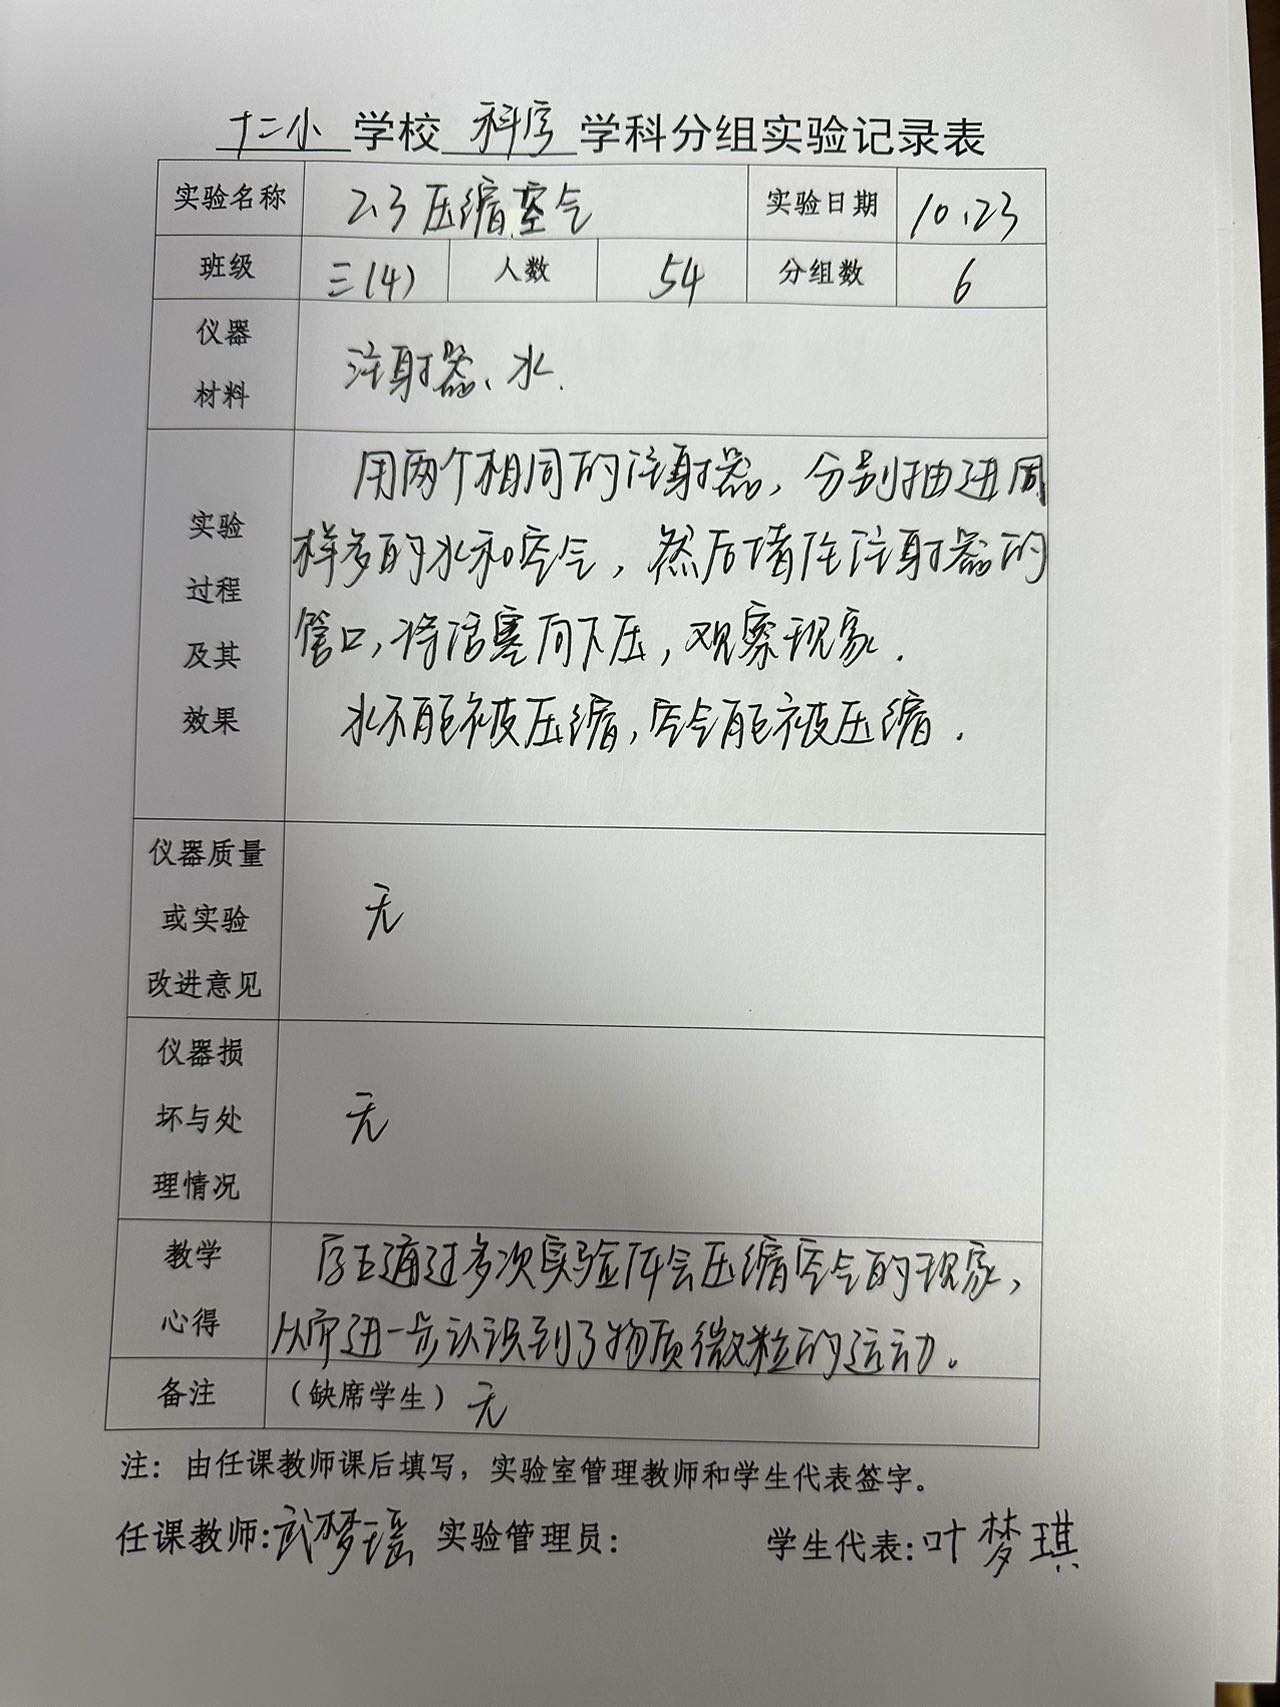 十二小 学校 科学 学科分组实验记录表
实验名称 2.3压缩空气 实验日期 10.23
班级 三(4) 人数 54 分组数 6
仪器
材料
注射器、水.
实验
过程
及其
效果
用两个相同的注射器，分别抽进同
样多的水和空气，然后堵住注射器的
管口，将活塞向下压，观察现象.
水不能被压缩，空气能被压缩.
仪器质量
或实验
改进意见
无
仪器损
坏与处
理情况
无
教学
心得
学生通过多次实验体会压缩空气的现象，
从而进一步认识到了物质微粒的运动。
备注 （缺席学生）无
注：由任课教师课后填写，实验室管理教师和学生代表签字。
任课教师:武梦瑶 实验管理员: 学生代表:叶梦琪